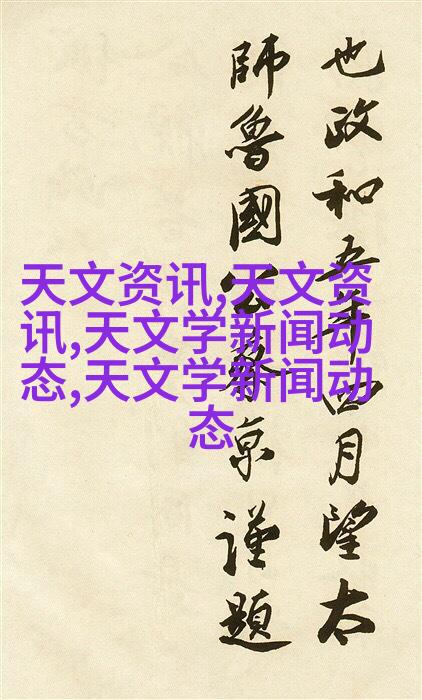 也政和五年四月望太
師魯國公蔡京謹題
天文资讯,天文资
讯,天文学新闻动
态,天文学新闻动
态